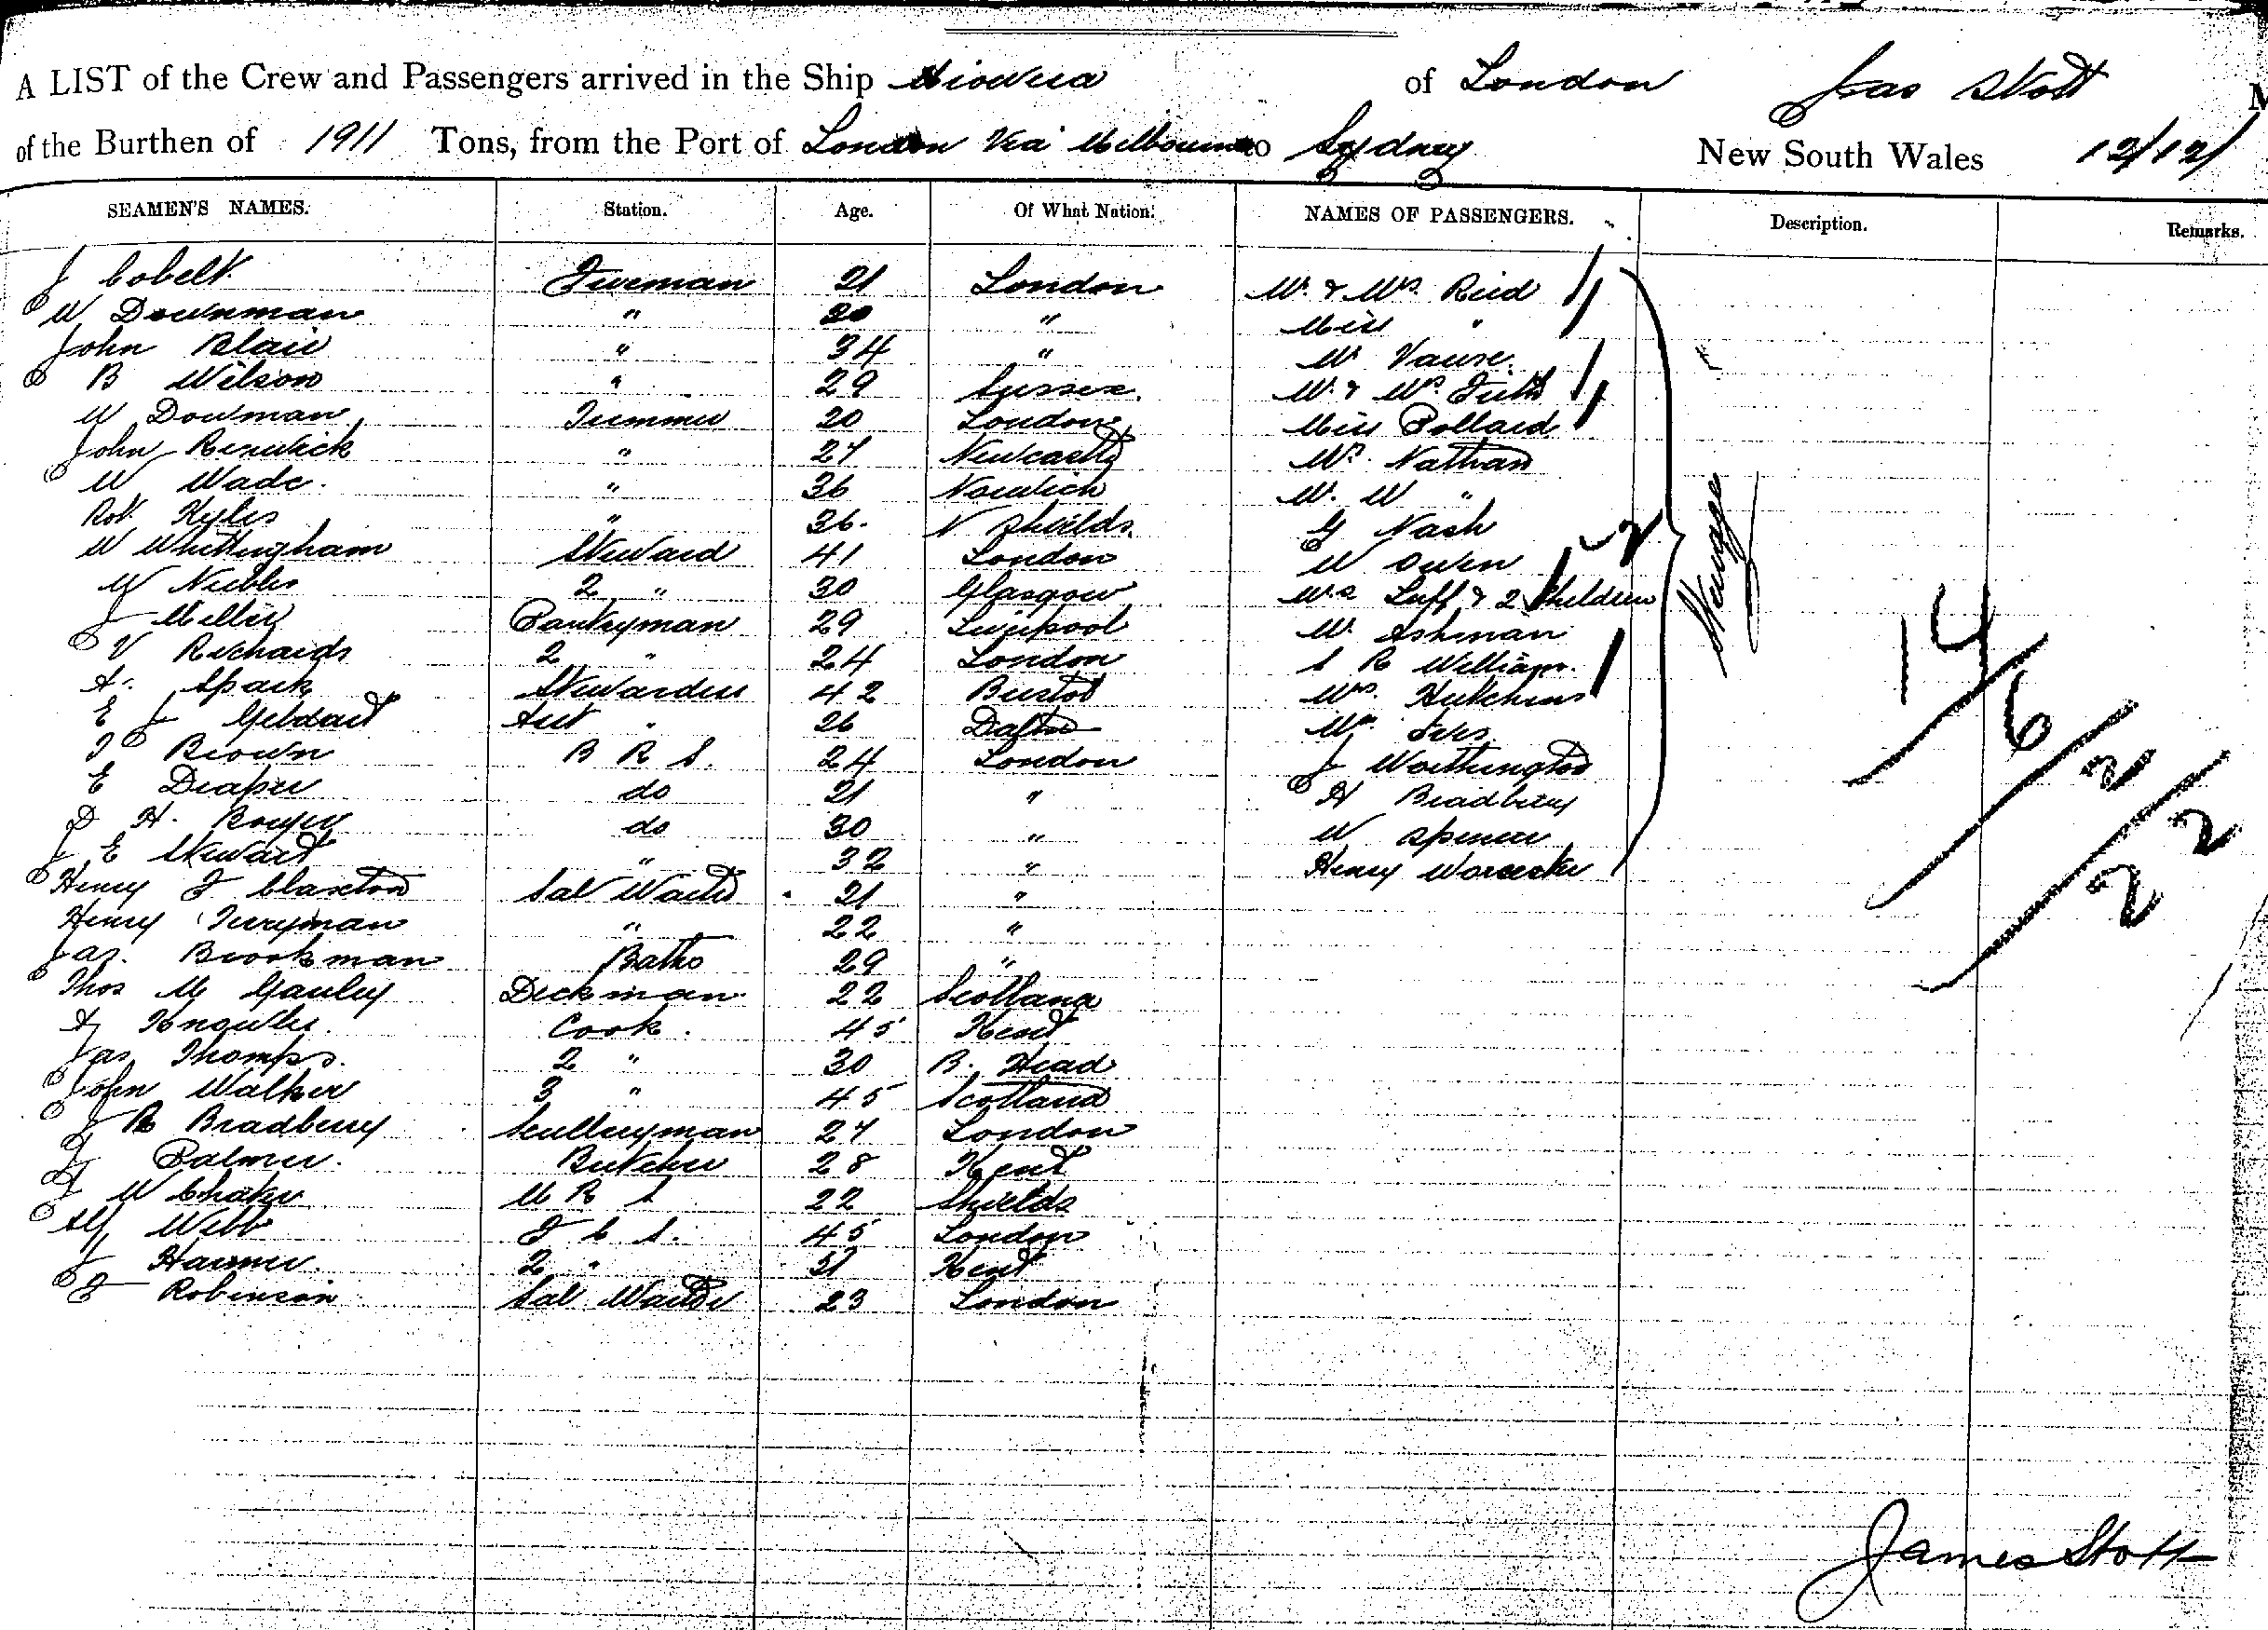 A LIST of the Crew and Passengers arrived in the Ship Hiowera of London Jas Stott M
of the Burthen of 1911 Tons, from the Port of London Via Melbourne to Sydney New South Wales 12/12/
SEAMEN'S NAMES. Station. Age. Of What Nation. NAMES OF PASSENGERS. Description. Remarks.
J Cobelt Fireman 21 London Mr. & Mrs. Reid
W Downman " 20 " Miss "
John Blair " 34 " Mr Vause.
B Wilson " 29 Sussex. Mr. & Mrs. Firth
W Dowman Trimmer 20 London Miss Pollard
John Renwick " 27 Newcastle Mrs. Nathan
W Wade. " 36 Norwich Mr. W "
Robt Kyles " 36. N Shields. G Nash
W Whittingham Steward 41 London W Owen
W 2 " 30 Glasgow Mrs Luff & 2 Children
J Miller Pantryman 29 Liverpool Mr. Ashman
V Richards 2 " 24 London S R William.
A. Spark Stewardess 42 Bristol Mrs. Hutchins
E J Geldart Asst " 26 Dalton Mrs.
Brown B R S. 24 London J Worthington
E Draper do 21 " H Bradbury
D H. Bowyer do 30 " W Spencer
J E Stewart " 32 " Henry Worcester
Henry J Claxton Sal Waiter 21 "
Henry Terryman " 22 "
Jas. Brookman Baths 29 "
Thos Mc Gauley Deckman 22 Scotland
A Knowles. Cook. 45 Kent
Jas Thomps. 2 " 30 B. Head
John Walker 3 " 45 Scotland
J R Bradberry Scullryman 27 London
J Palmer. Butcher 28 Kent
J W Chater M R S 22 Shields
Alf Webb F C S. 45 London
J Harmer. 2 " 31 Kent
J Robinson Sal Waiter 23 London
Steerage
14
6
2
22
James Stott